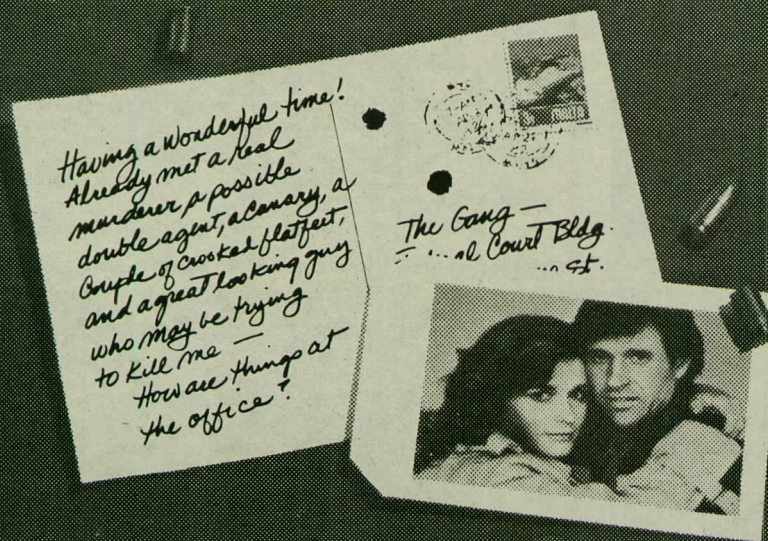 Having a wonderful time!
Already met a real
murderer, a possible
double agent, a canary, a
couple of crooked flatfeet,
and a great looking guy
who may be trying
to kill me —
How are things at
the office?
MALTA
The Gang —
Court Bldg.
St.